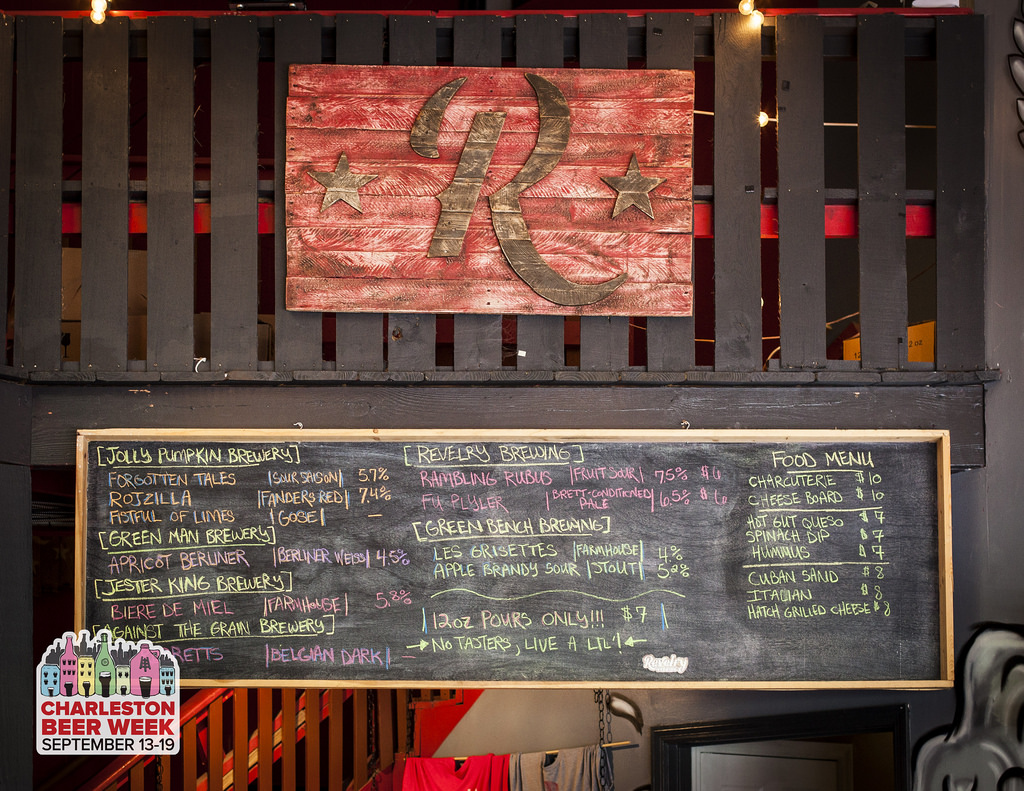 R
2 oz
[JOLLY PUMPKIN BREWERY]
FORGOTTEN TALES |SOUR SAISON| 5.7%
ROTZILLA |FANDERS RED| 7.4%
FISTFUL OF LIMES |GOSE| —
[GREEN MAN BREWERY]
APRICOT BERLINER |BERLINER WEISS| 4.5%
[JESTER KING BREWERY]
BIERE DE MIEL |FARMHOUSE| 5.8%
AGAINST THE GRAIN BREWERY]
RETTS |BELGIAN DARK| —
[REVELRY BREWING]
RAMBLING RUBUS |FRUIT SOUR| 7.5% $6
FU PLYLER |BRETT-CONDITIONED PALE| 6.5% $6
[GREEN BENCH BREWING]
LES GRISETTES |FARMHOUSE| 4%
APPLE BRANDY SOUR |STOUT| 5.2%
|12oz POURS ONLY!!! $7|
→ NO TASTERS, LIVE A LIL'! ←
Revelry
FOOD MENU
CHARCUTERIE $10
CHEESE BOARD $10
HOT GUT QUESO $7
SPINACH DIP $7
HUMMUS $7
CUBAN SAND $8
ITALIAN $8
HATCH GRILLED CHEESE $8
CHARLESTON
BEER WEEK
SEPTEMBER 13-19